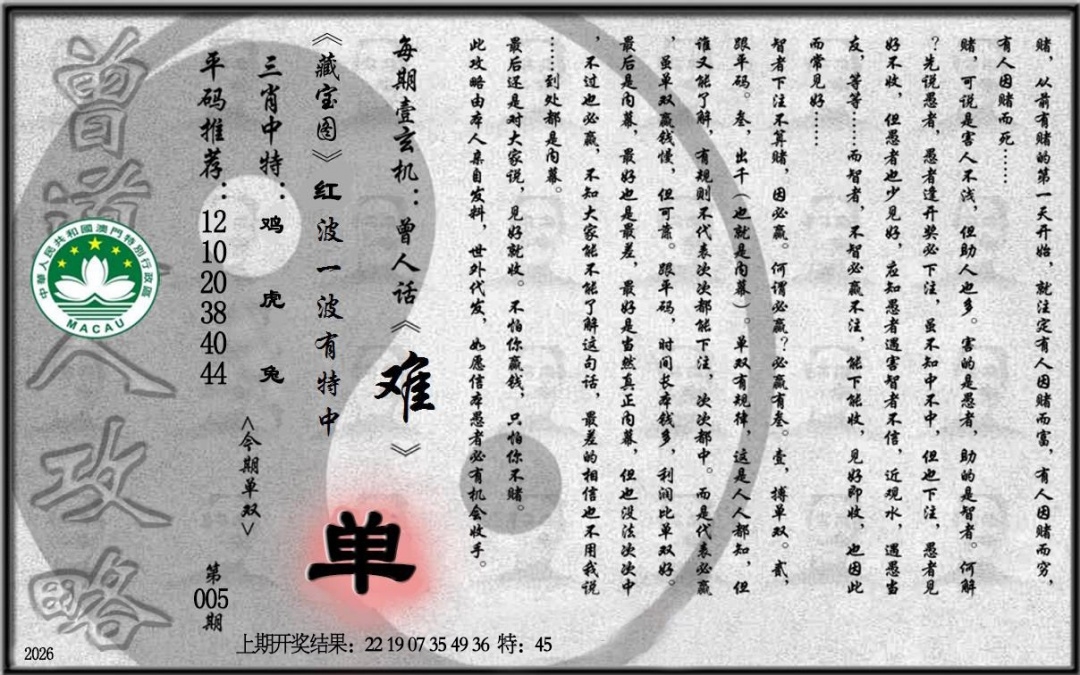 赌，从前有赌的第一天开始，就注定有人因赌而富，有人因赌而穷，
有人因赌而死……
赌，可说是害人不浅，但助人也多。害的是愚者，助的是智者。何解
？先说愚者，愚者逢开奖必下注，虽不知中不中，但也下注，愚者见
好不收，但愚者也少见好，应知愚者遇害智者不信，近观水，遇愚当
友，等等……而智者，不智必赢不注，能下能收，见好即收，也因此
而常见好……
智者下注不算赌，因必赢。何谓必赢？必赢有叁。壹，搏单双。贰，
跟单码。叁，出千（也就是内幕）。单双有规律，这是人人都知，但
谁又能了解，有规则不代表次次都能下注，次次都中。而是代表必赢
，虽单双赢钱慢，但可靠。跟单码，时间长本钱多，利润比单双好。
最后是内幕，最好也是最差，最好是当然真正内幕，但也没法次次中
，不过也必赢，不知大家能不能了解这句话，最差的相信也不用我说
……到处都是内幕。
最后还是对大家说，见好就收。不怕你赢钱，只怕你不赌。
此攻略由本人亲自发料，世外代发，如愿信本愚者必有机会收手。
每期壹玄机：曾人话《难》
《藏宝图》红波一波有特中
单
三肖中特：鸡 虎 兔
<今期单双>
平码推荐：12 10 20 38 40 44
第005期
曾道人攻略
中華人民共和國澳門特別行政區
MACAU
上期开奖结果：22 19 07 35 49 36 特：45
2026